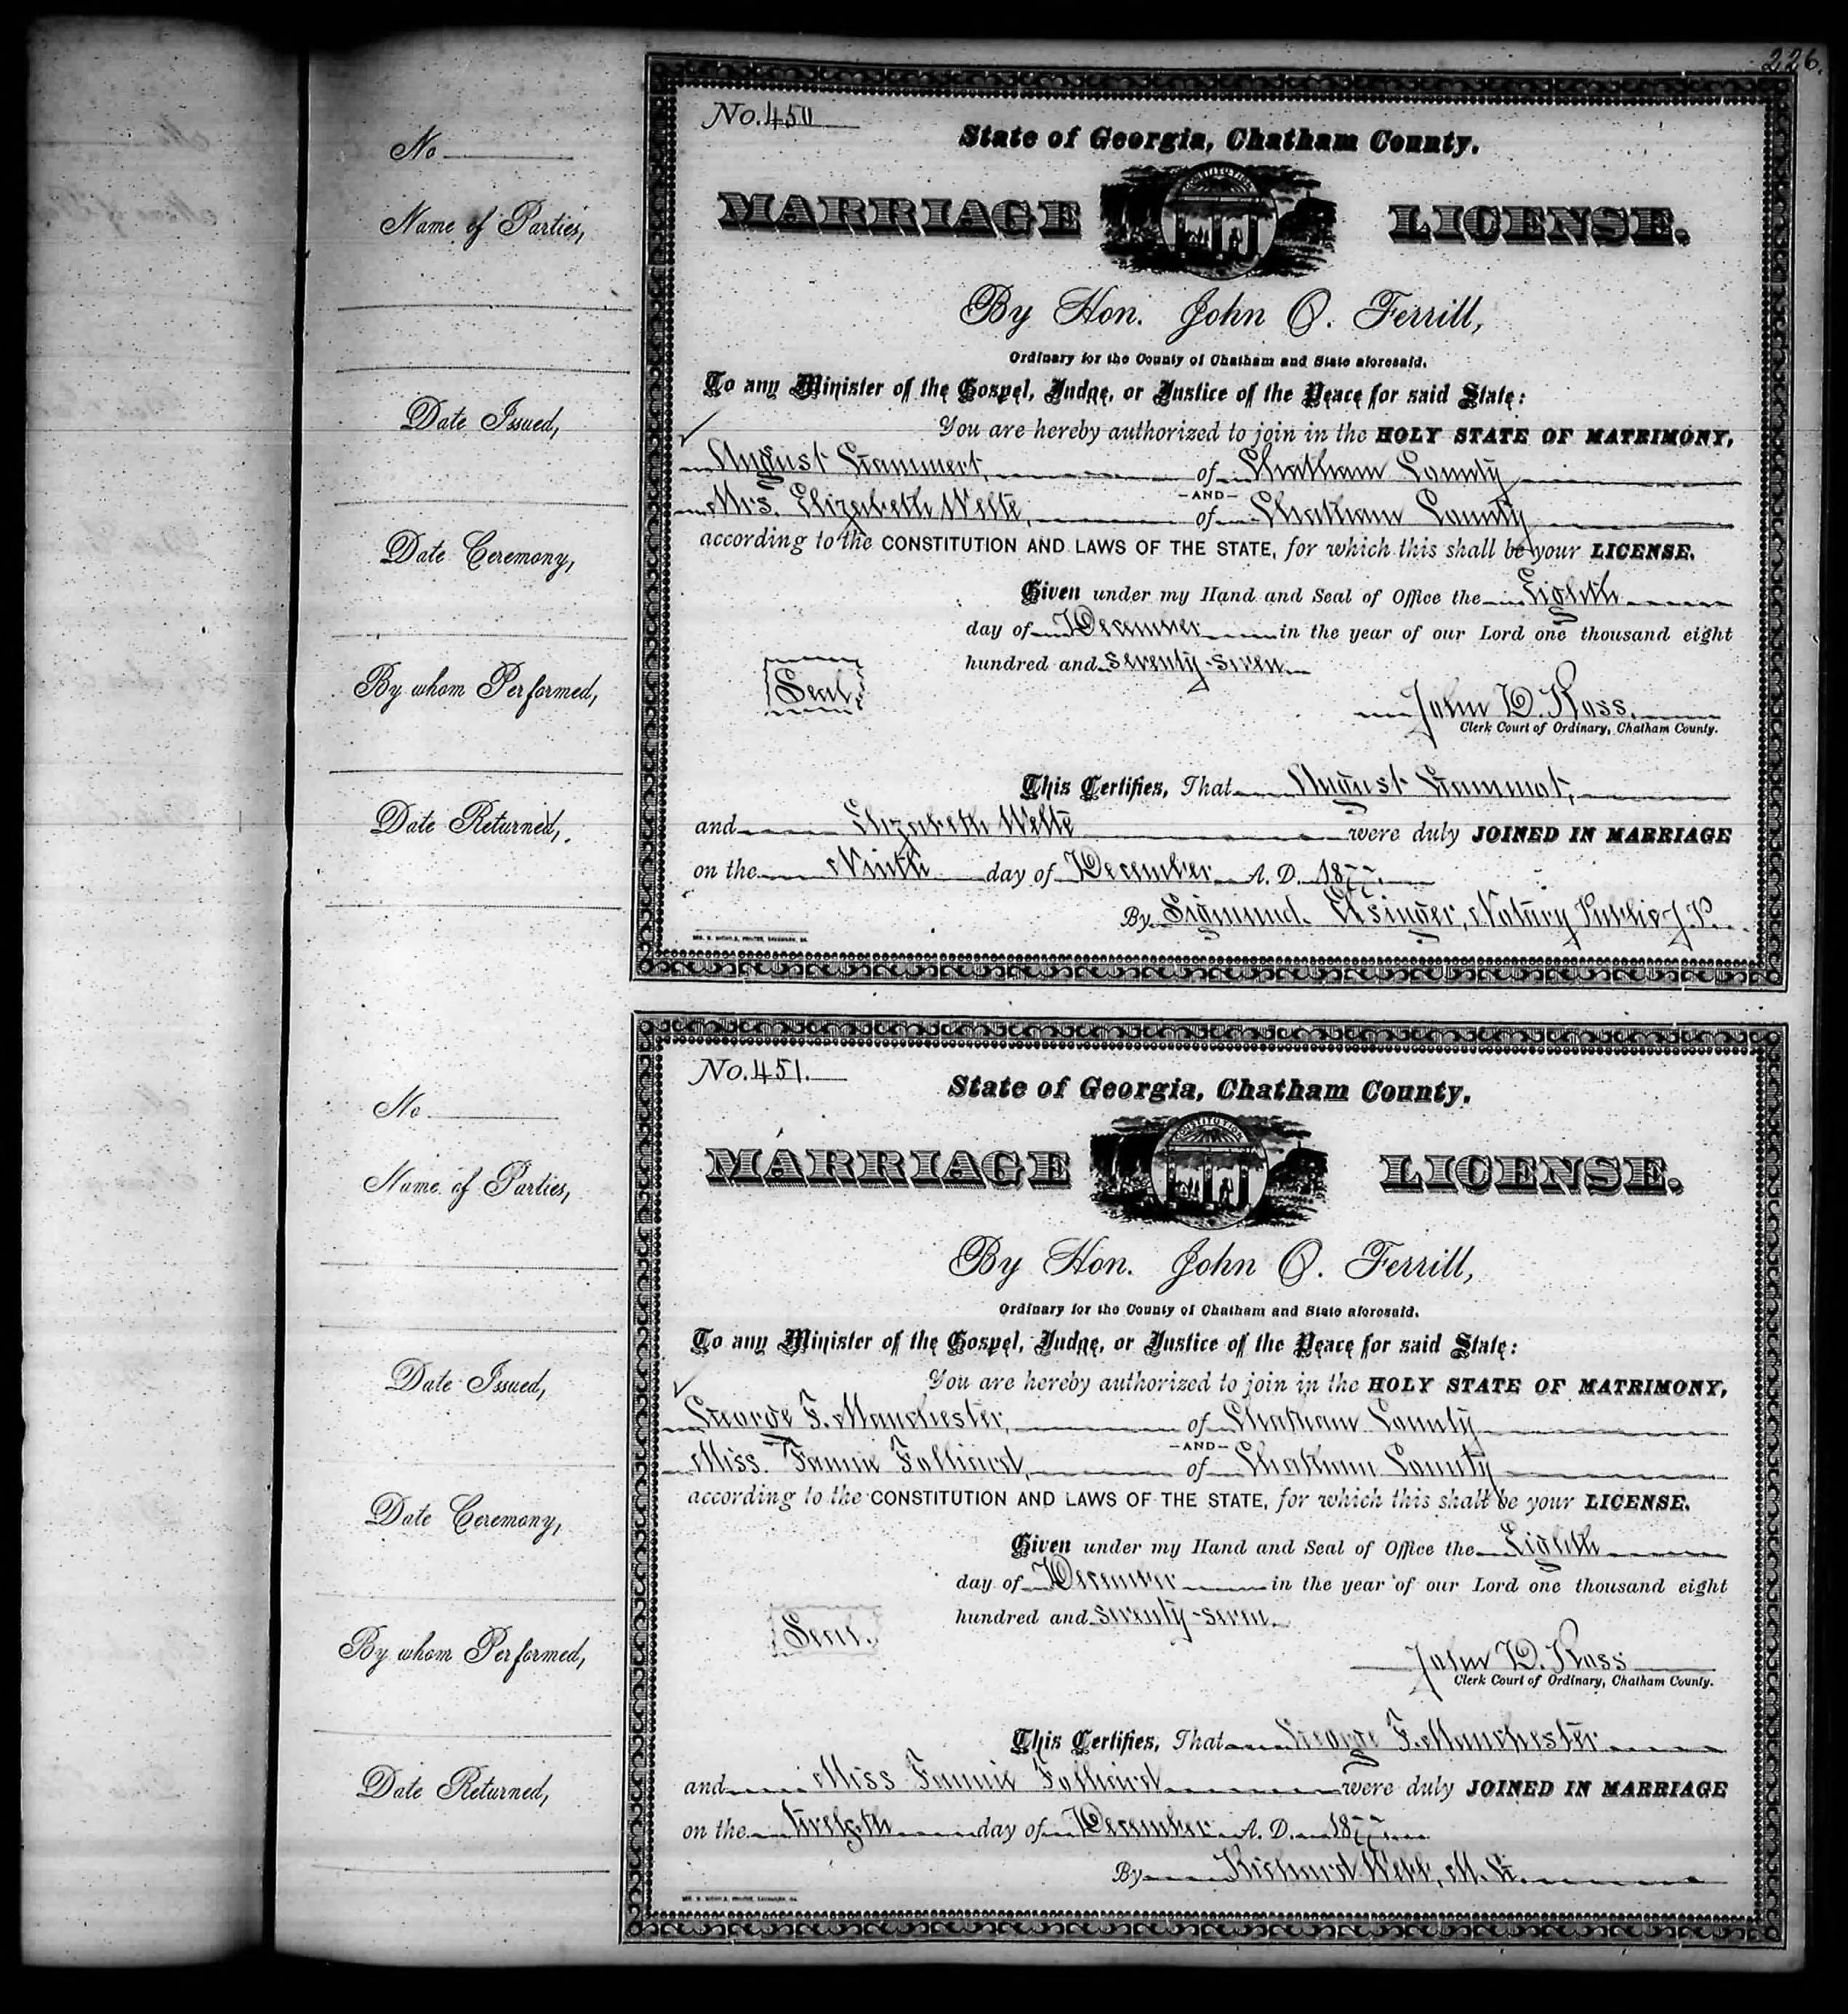 226.
No.
Name of Parties,
Date Issued,
Date Ceremony,
By whom Performed,
Date Returned,
No. 450
State of Georgia, Chatham County.
MARRIAGE LICENSE.
CONSTITUTION
By Hon. John O. Ferrill,
Ordinary for the County of Chatham and State aforesaid.
To any Minister of the Gospel, Judge, or Justice of the Peace for said State:
You are hereby authorized to join in the HOLY STATE OF MATRIMONY,
August Gammert, of Chatham County
-AND-
Mrs. Elizabeth Welte, of Chatham County
according to the CONSTITUTION AND LAWS OF THE STATE, for which this shall be your LICENSE.
Given under my Hand and Seal of Office the Eighth
day of December in the year of our Lord one thousand eight
hundred and seventy-seven
Seal.
John D. Ross.
Clerk Court of Ordinary, Chatham County.
This Certifies, That August Gammot,
and Elizabeth Welte were duly JOINED IN MARRIAGE
on the Ninth day of December A. D. 1877.
By Sigmund Elsinger, Notary Public J.P.
No.
Name of Parties,
Date Issued,
Date Ceremony,
By whom Performed,
Date Returned,
No. 451.
State of Georgia, Chatham County.
MARRIAGE LICENSE.
CONSTITUTION
By Hon. John O. Ferrill,
Ordinary for the County of Chatham and State aforesaid.
To any Minister of the Gospel, Judge, or Justice of the Peace for said State:
You are hereby authorized to join in the HOLY STATE OF MATRIMONY,
George F. Manchester, of Chatham County
-AND-
Miss Fannie Falliard, of Chatham County
according to the CONSTITUTION AND LAWS OF THE STATE, for which this shall be your LICENSE.
Given under my Hand and Seal of Office the Eighth
day of December in the year of our Lord one thousand eight
hundred and seventy-seven.
Seal.
John D. Ross
Clerk Court of Ordinary, Chatham County.
This Certifies, That George F. Manchester
and Miss Fannie Falliard were duly JOINED IN MARRIAGE
on the twelfth day of December A. D. 1877
By Richard Webb, M. G.